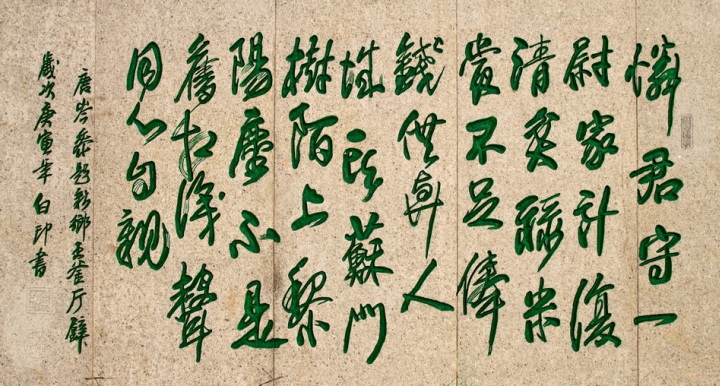 憐君守一
尉家計復
清貧祿米
嘗不足俸
錢供與人
城頭蘇門
樹陌上黎
陽塵不是
舊相識聲
同心自親
唐岑參題新鄉王釜厅壁
歲次庚寅年白印書